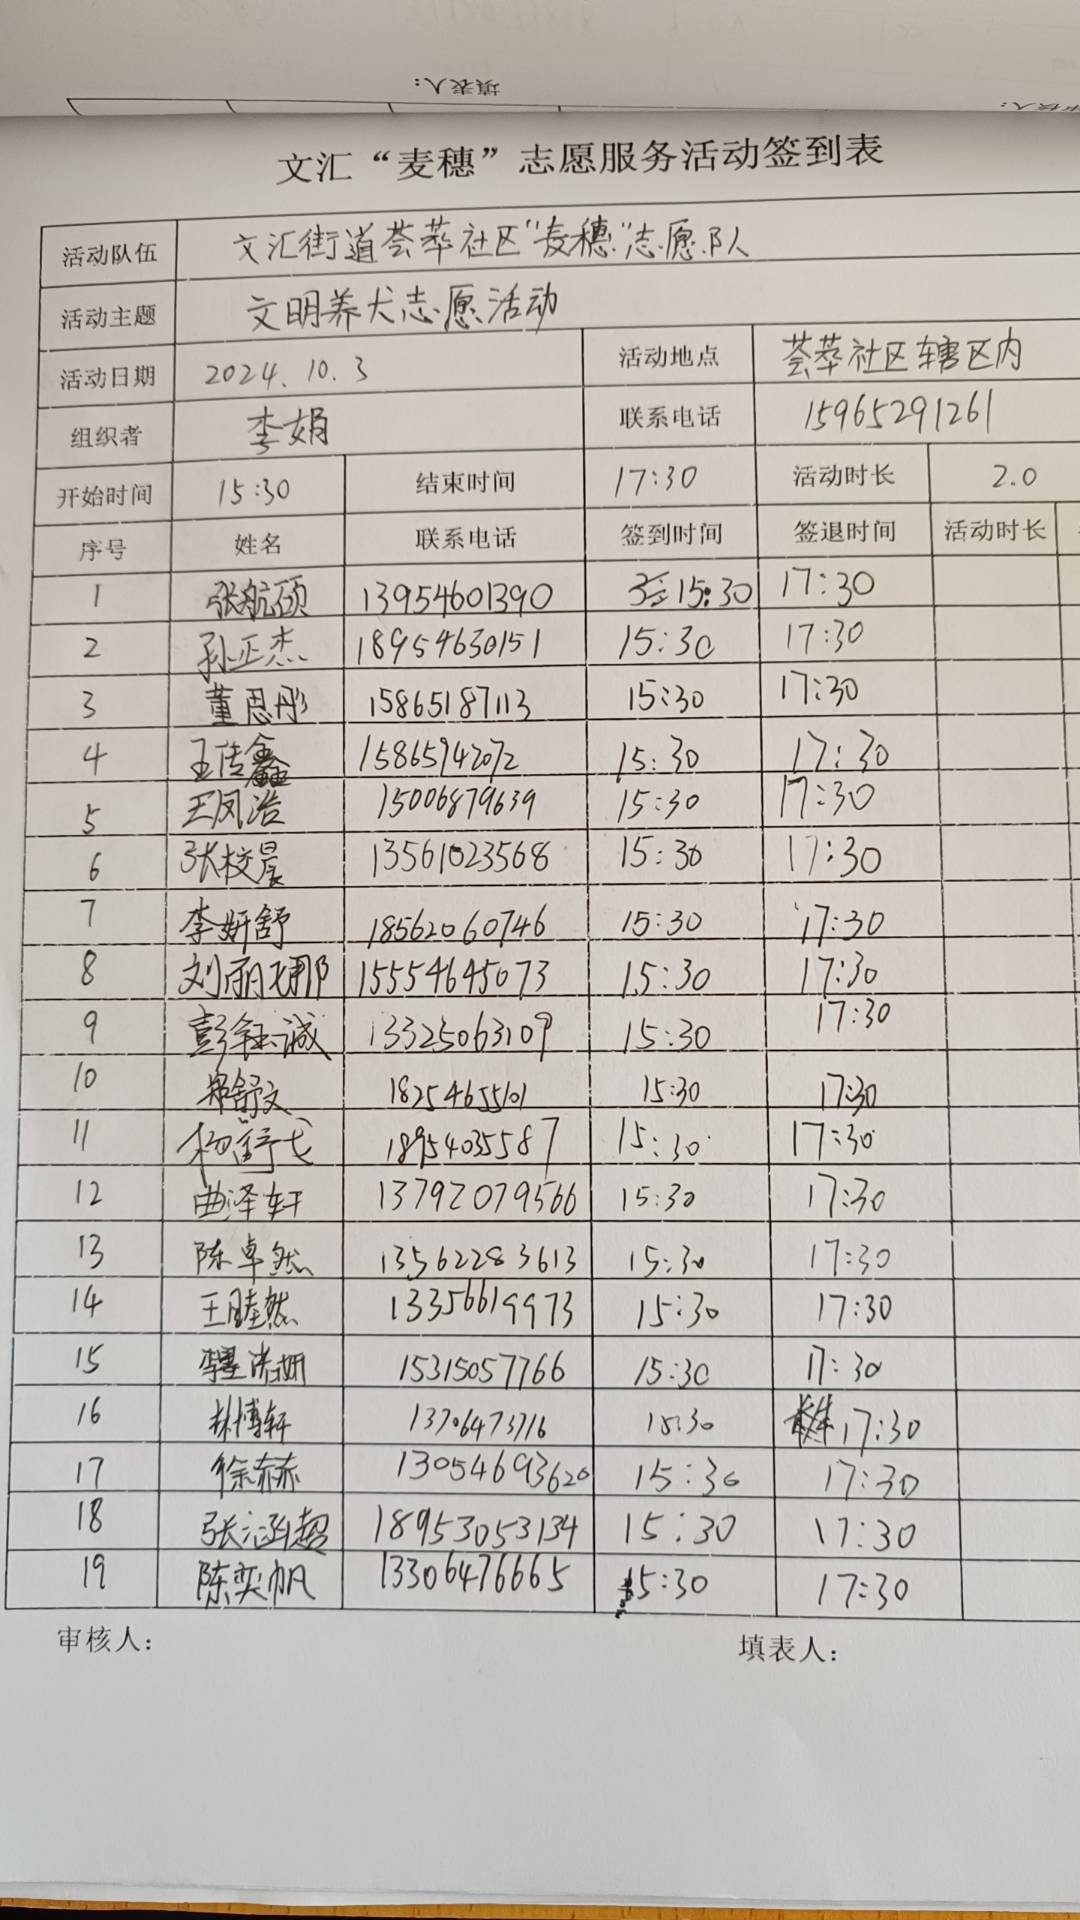 填表人：
审核人：
文汇“麦穗”志愿服务活动签到表
活动队伍 文汇街道荟萃社区“麦穗”志愿队
活动主题 文明养犬志愿活动
活动日期 2024.10.3 活动地点 荟萃社区辖区内
组织者 李娟 联系电话 15965291261
开始时间 15:30 结束时间 17:30 活动时长 2.0
序号 姓名 联系电话 签到时间 签退时间 活动时长
1 张航硕 13954601390 15:30 17:30
2 孙正杰 18954630151 15:30 17:30
3 董思彤 15865187113 15:30 17:30
4 王传鑫 15865942072 15:30 17:30
5 王凤浩 15006879639 15:30 17:30
6 张校晨 13561023568 15:30 17:30
7 李妍舒 18562060746 15:30 17:30
8 刘丽娜 15554645073 15:30 17:30
9 彭钰诚 13325063109 15:30 17:30
10 郑舒文 18254655101 15:30 17:30
11 杨舒弋 18954035587 15:30 17:30
12 曲泽轩 13792079566 15:30 17:30
13 陈卓然 13562283613 15:30 17:30
14 王睦然 13356619973 15:30 17:30
15 15315057766 15:30 17:30
16 林博轩 13706473716 15:30 17:30
17 徐赫赫 13054693620 15:30 17:30
18 张涵超 18953053134 15:30 17:30
19 陈奕帆 13306476665 15:30 17:30
审核人： 填表人：